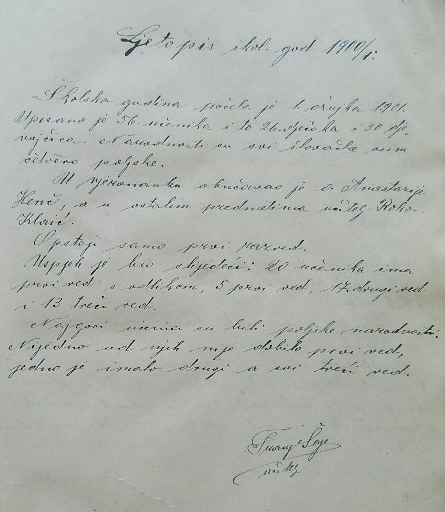 Ljetopis škol. god 1900/1.
Školska godina počela je 1. ožujka 1901.
Upisano je 56 učenika i to 26 dječaka i 30 dje-
vojčica. Narodnosti su svi slovačke osim
četvero poljske.
U vjeronauku obučavao je o. Anastazije
a u ostalim predmetima učitelj Roko
Klarić.
Opstoji samo prvi razred.
Uspjeh je bio slijedeći: 20 učenika ima
prvi red s odlikom, 5 prvi red, 17 drugi red
i 13 treći red.
Najgori učenici su bili poljske narodnosti.
Nijedno od njih nije dobilo prvi red,
jedno je imalo drugi a svi treći red.
Franje
učitelj